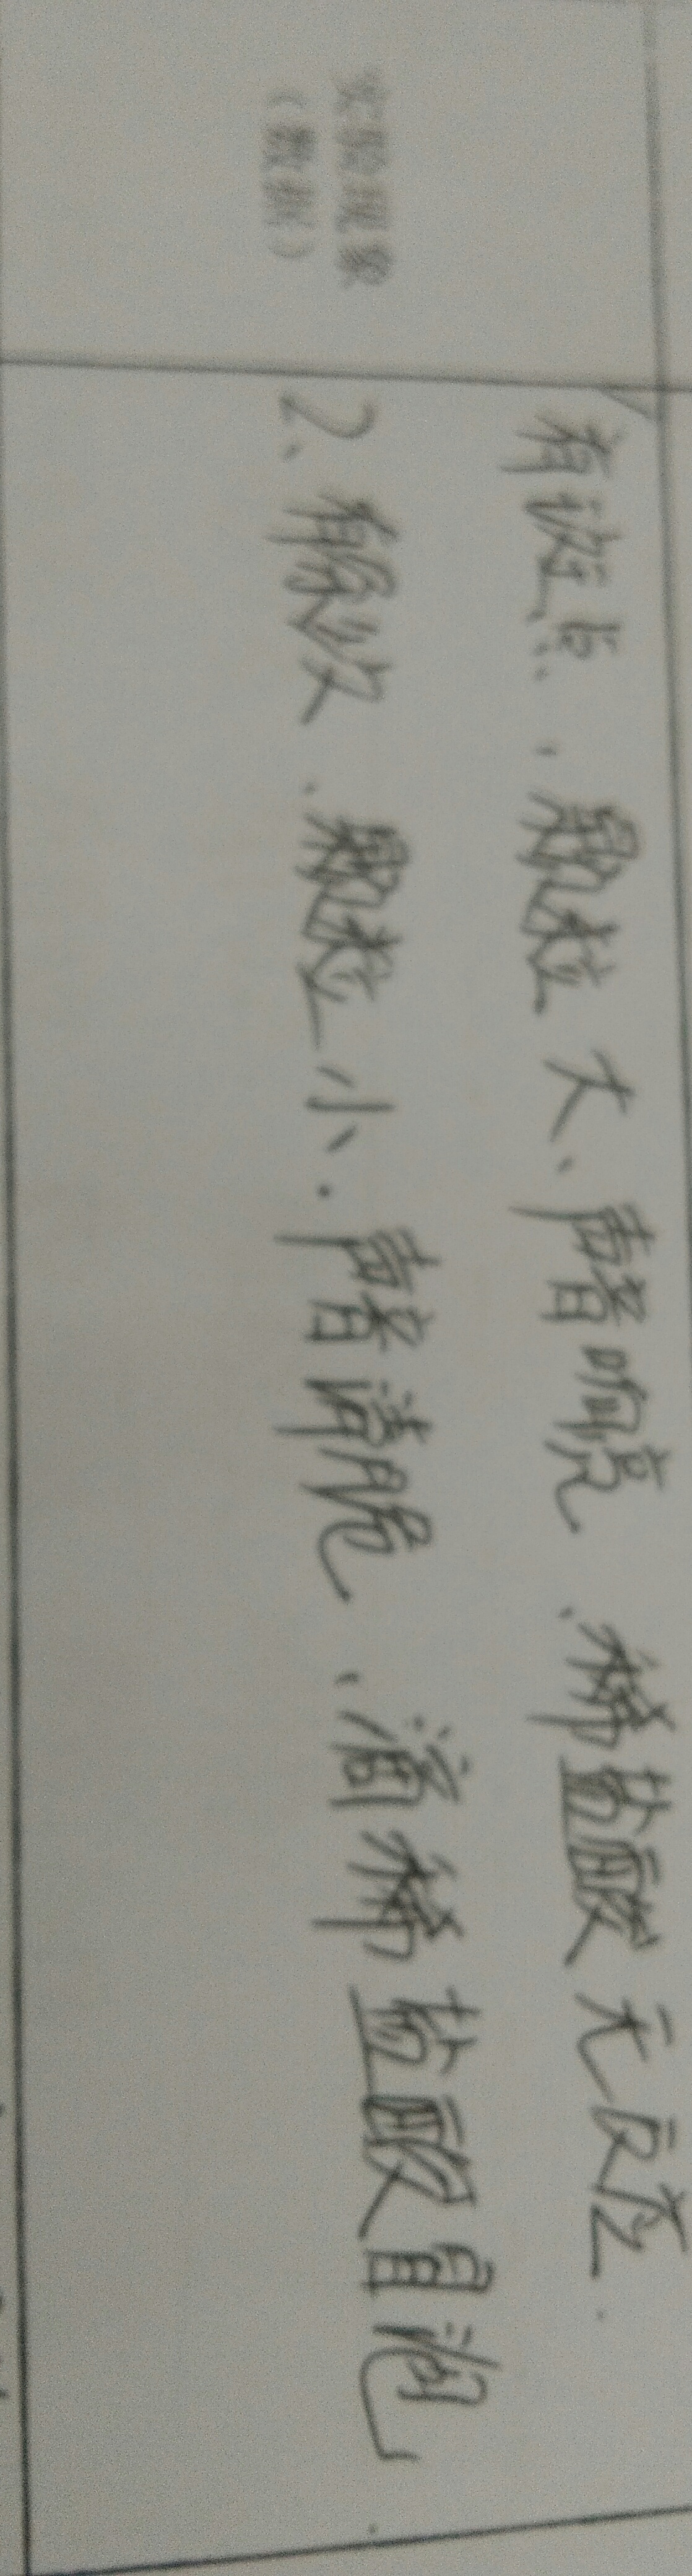 实验现象
（数据）
有斑点、颗粒大、声音响亮、稀盐酸无反应.
2、有条纹、颗粒小.声音清脆、滴稀盐酸冒泡.